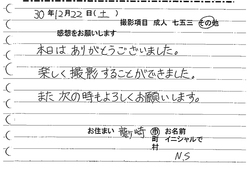 30年12月22日(土)
撮影項目 成人 七五三 その他
感想をお願いします
本日は ありがとうございました。
楽しく撮影することができました。
また 次の時もよろしくお願いします。
お住まい 龍ヶ崎 市 町 村 お名前 イニシャルで
N.S